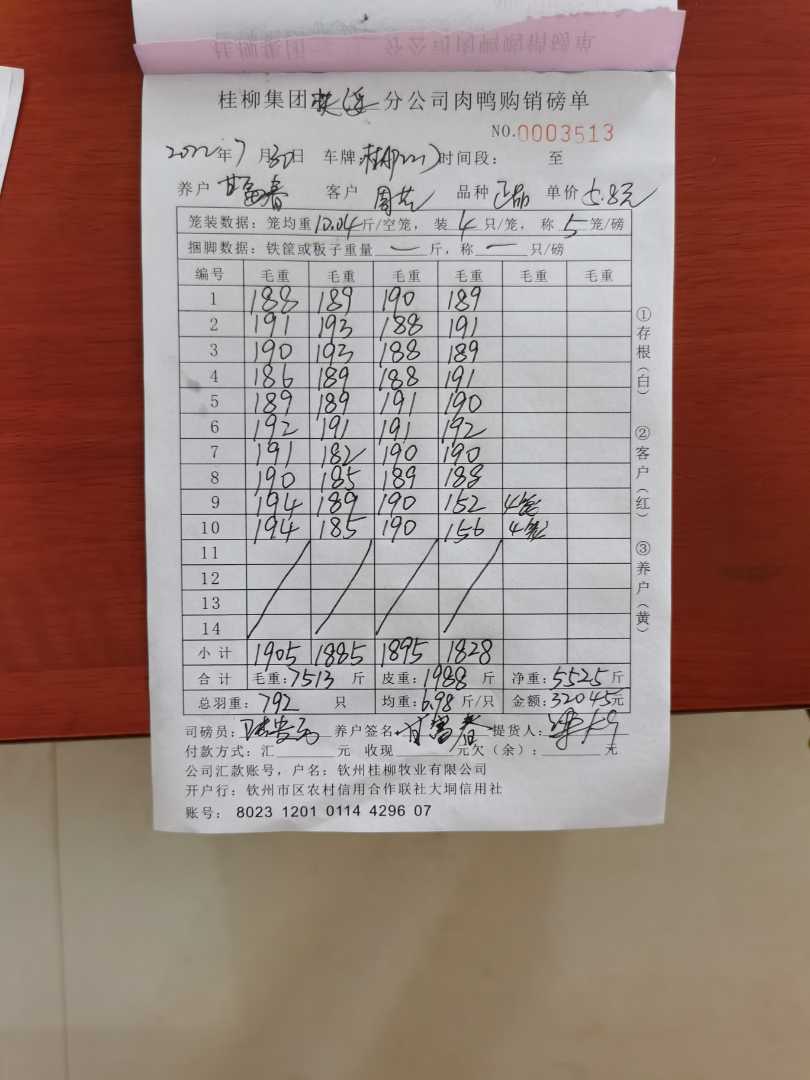 桂柳集团 分公司肉鸭购销磅单
NO.0003513
2022年7月30日 车牌: 时间段: 至
养户 甘富春 客户 周艺 品种 正品 单价 5.8元
笼装数据: 笼均重10.04斤/空笼, 装4只/笼, 称5笼/磅
捆脚数据: 铁筐或板子重量一斤, 称一只/磅
编号 毛重 毛重 毛重 毛重 毛重 毛重
1 188 189 190 189
2 191 193 188 191
3 190 193 188 189
4 186 189 188 191
5 189 189 191 190
6 192 191 191 192
7 191 182 190 190
8 190 185 189 188
9 194 189 190 152 4笼
10 194 185 190 156 4笼
11
12
13
14
小计 1905 1885 1895 1828
合计 毛重:7513斤 皮重:1988斤 净重:5525斤
总羽重:792只 均重:6.98斤/只 金额:32045元
司磅员: 养户签名:甘富春 提货人:
付款方式:汇 元 收现 元欠(余): 元
公司汇款账号,户名:钦州桂柳牧业有限公司
开户行:钦州市区农村信用合作联社大垌信用社
账号: 8023 1201 0114 4296 07
①存根(白)
②客户(红)
③养户(黄)